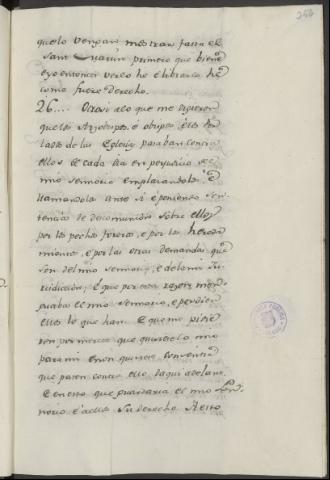 254
quelo vengan mostrar fasta el
Sant Martin primero que biene
e yo entonces verlo he e librarlo he
como fuere derecho.
26.... Otrosi alo que me digeron
que los Arzobispos e obispos e los Per
lados de las Eglesias pasaban contra
ellos de cada dia en perjuicio de
mio sennorio emplazandolos e
llamandolos ante si e poniendo Sen
tencias de descomunion sobre ellos
por los pechos foreros, e por las hereda
mientos, e por las otras demandas que
son del mio sennorio, e dela mi Ju
risdicion; E que por esta razon men
guaba el mio Sennorio, e perdien
ellos lo que han. E que me pidie
ron por merced que guarde lo mio
para mi e non quiera consentir
que pasen contra ello daqui adelante.
E en esto que guardaria el mio Sen
norio e a ellos Su derecho. A esto